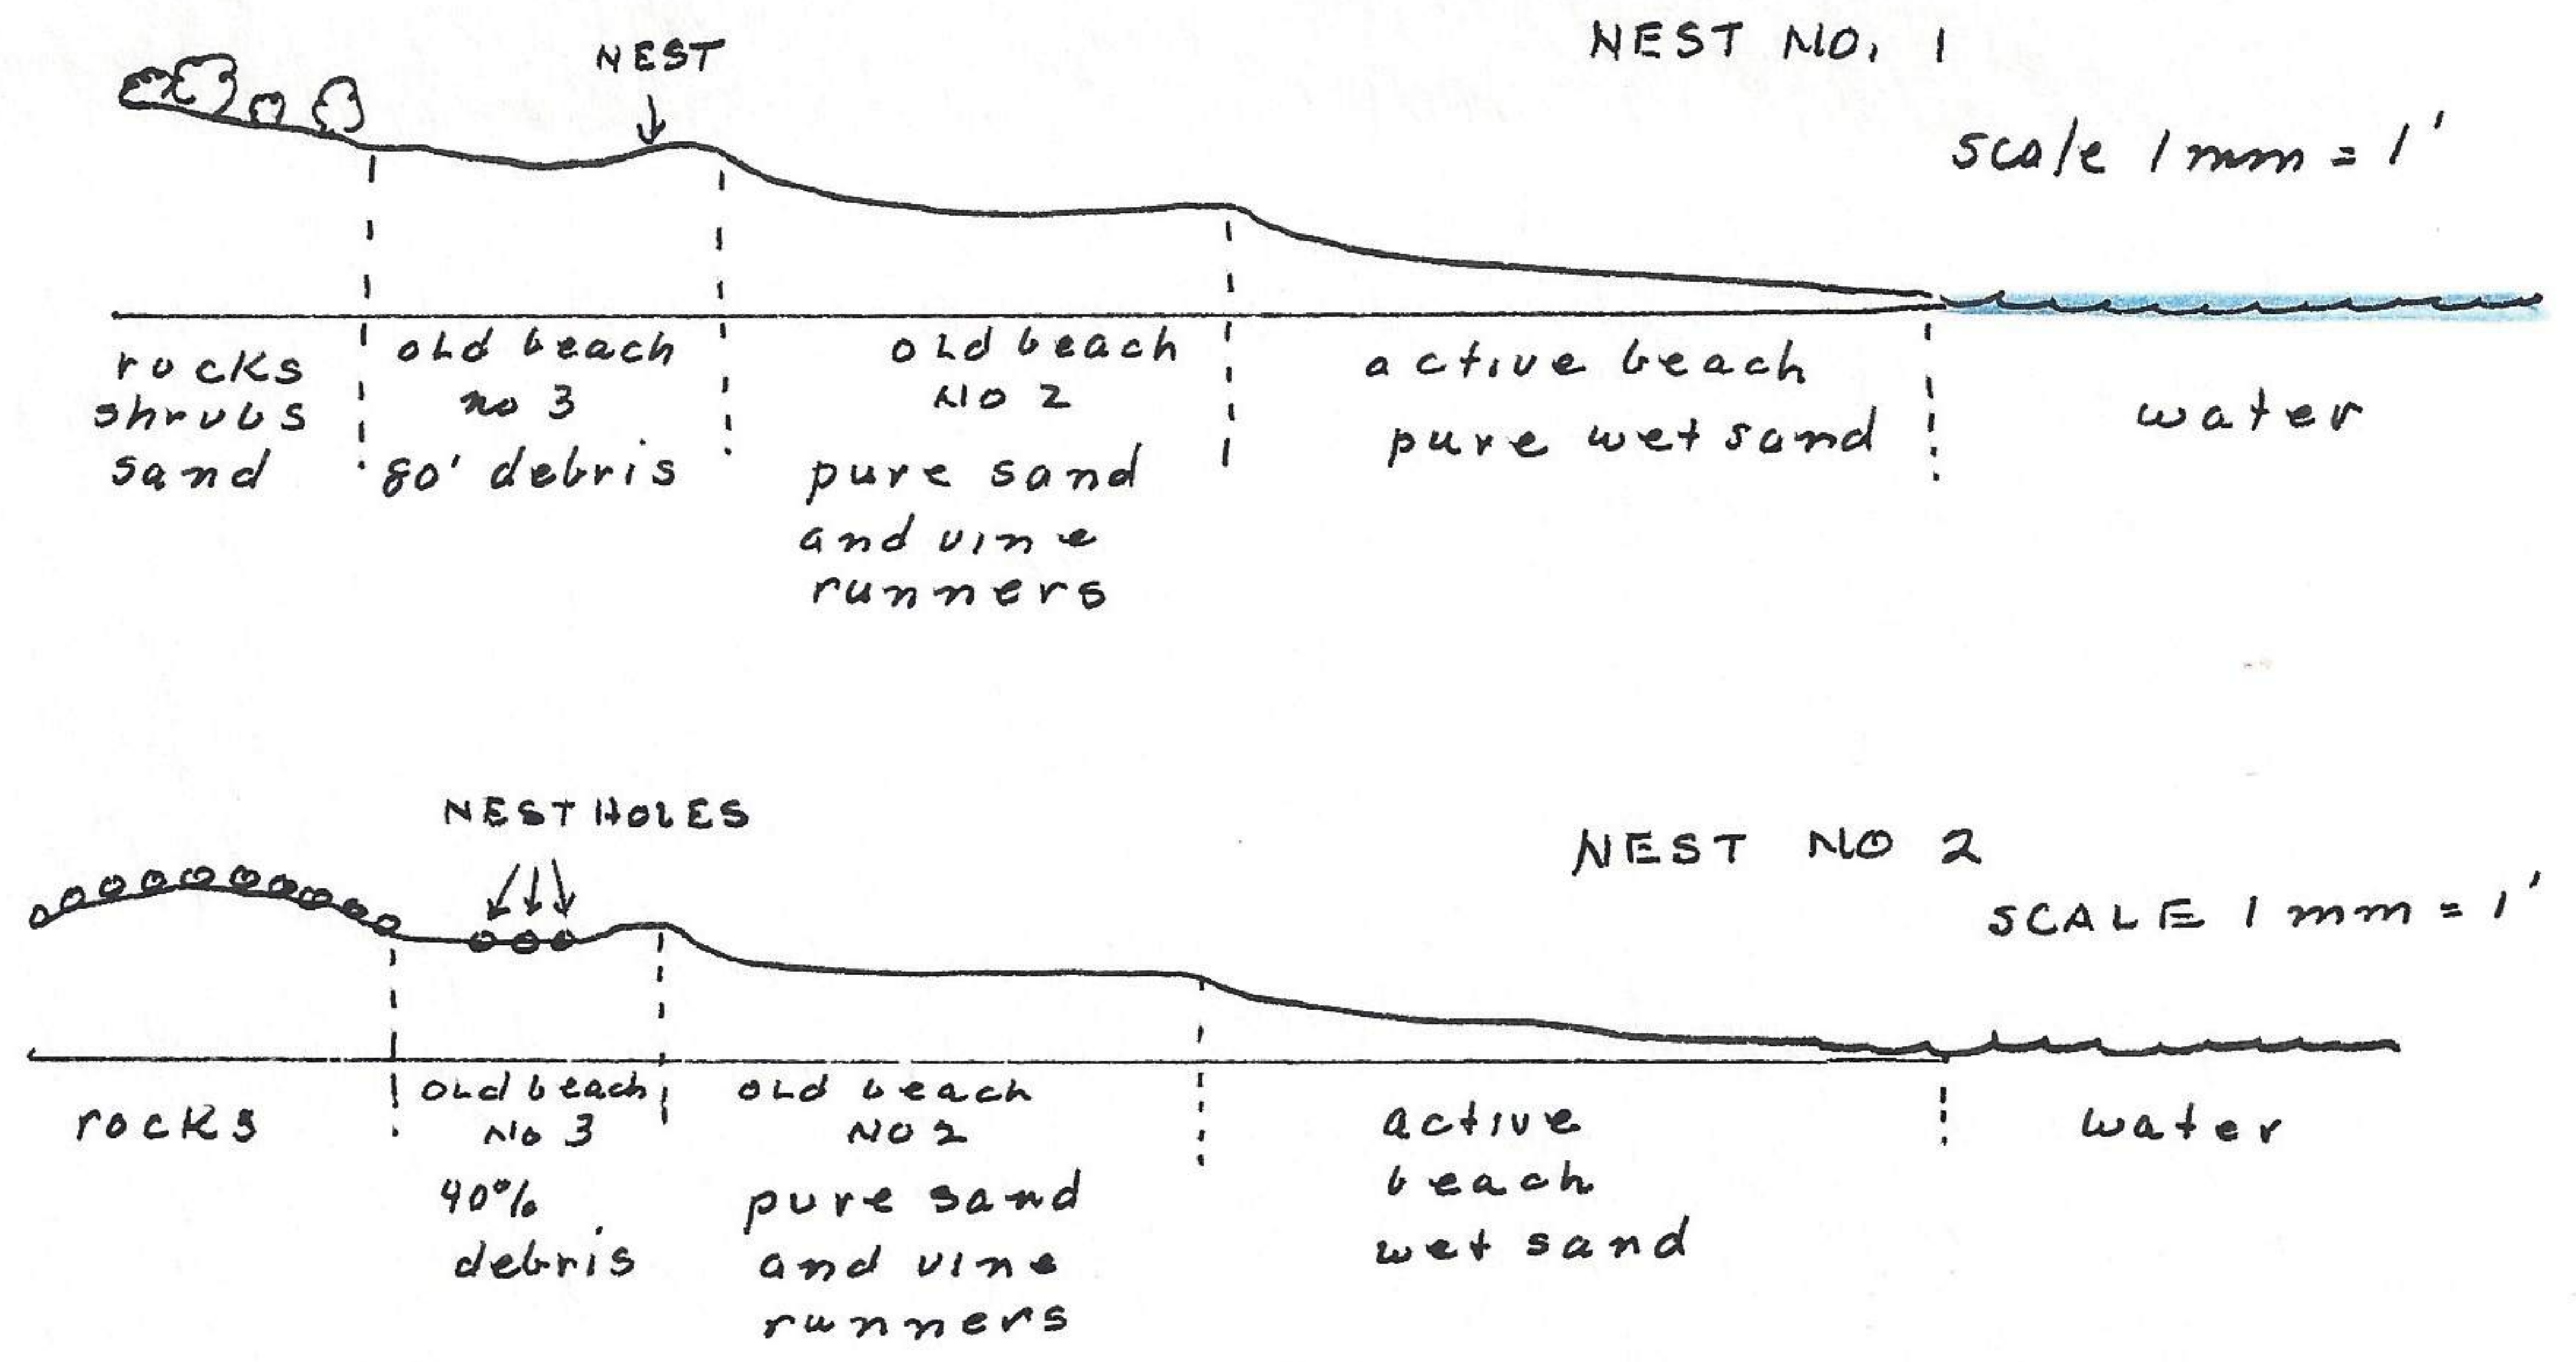 NEST
NEST NO. 1
scale 1 mm = 1'
rocks
shrubs
sand
old beach
no 3
80' debris
old beach
NO 2
pure sand
and vine
runners
active beach
pure wet sand
water
NEST HOLES
NEST NO 2
SCALE 1 mm = 1'
rocks
old beach
No 3
40%
debris
old beach
NO 2
pure sand
and vine
runners
active
beach
wet sand
water